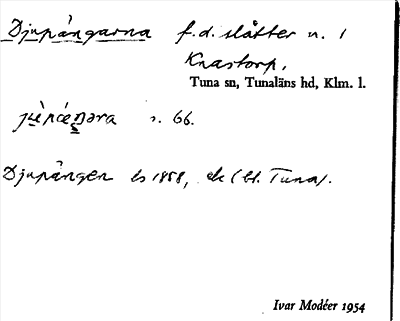 Djupängarna f. d. slåtter n. 1
Knastorp,
Tuna sn, Tunaläns hd, Klm. l.
s. 66.
Djupängen ls 1858, ek (bl. Tuna).
Ivar Modéer 1954